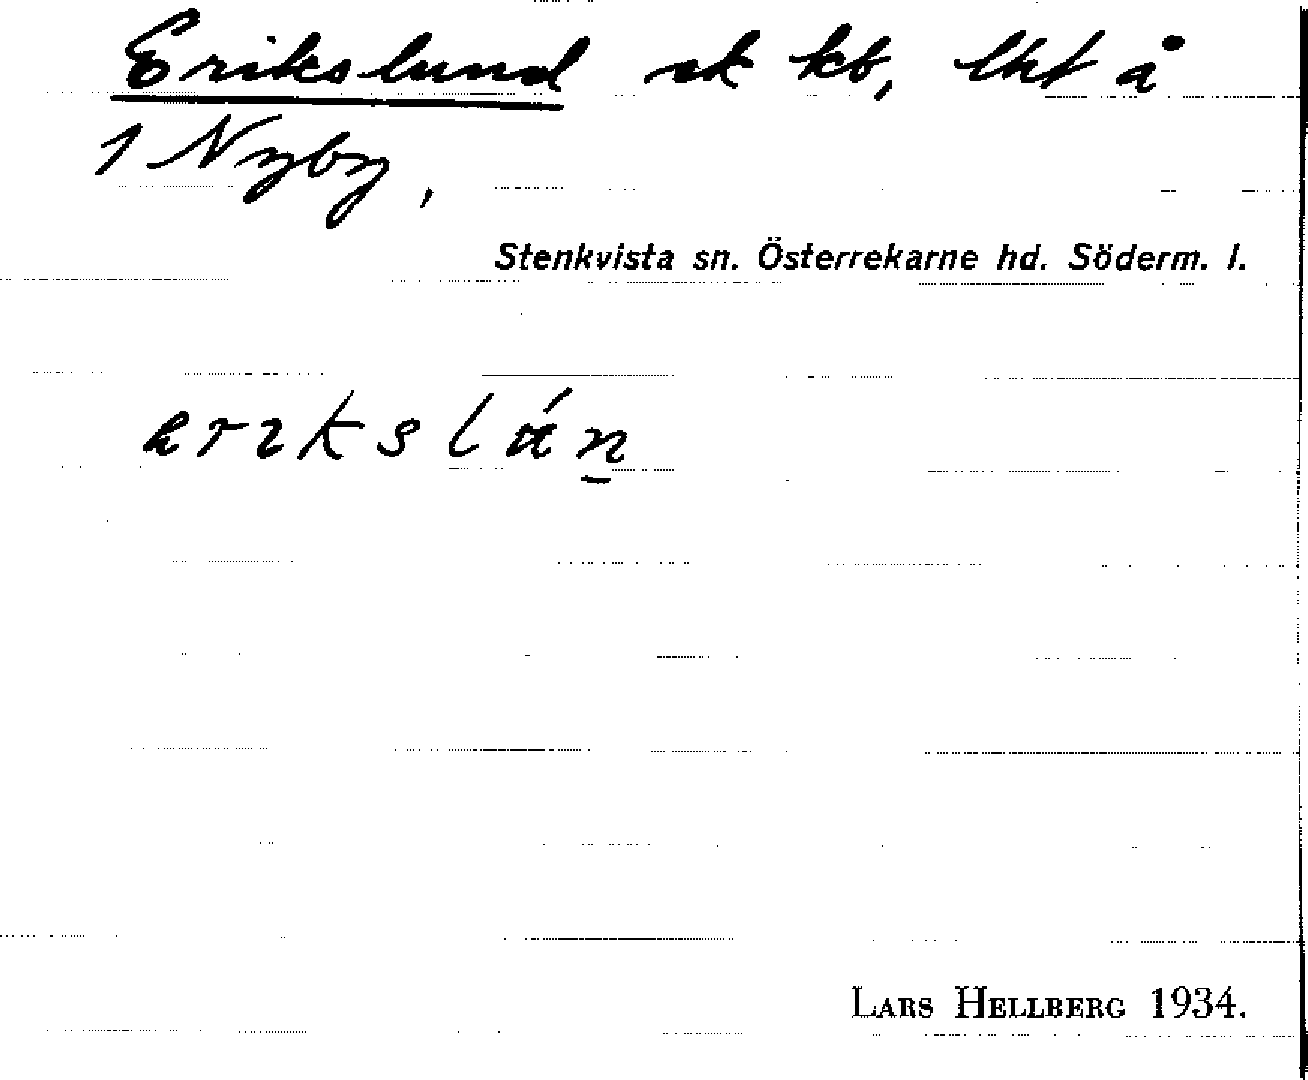 Erikslund sk kb, lht å
1 Nyby,
Stenkvista sn. Österrekarne hd. Söderm. l.
LARS HELLBERG 1934.